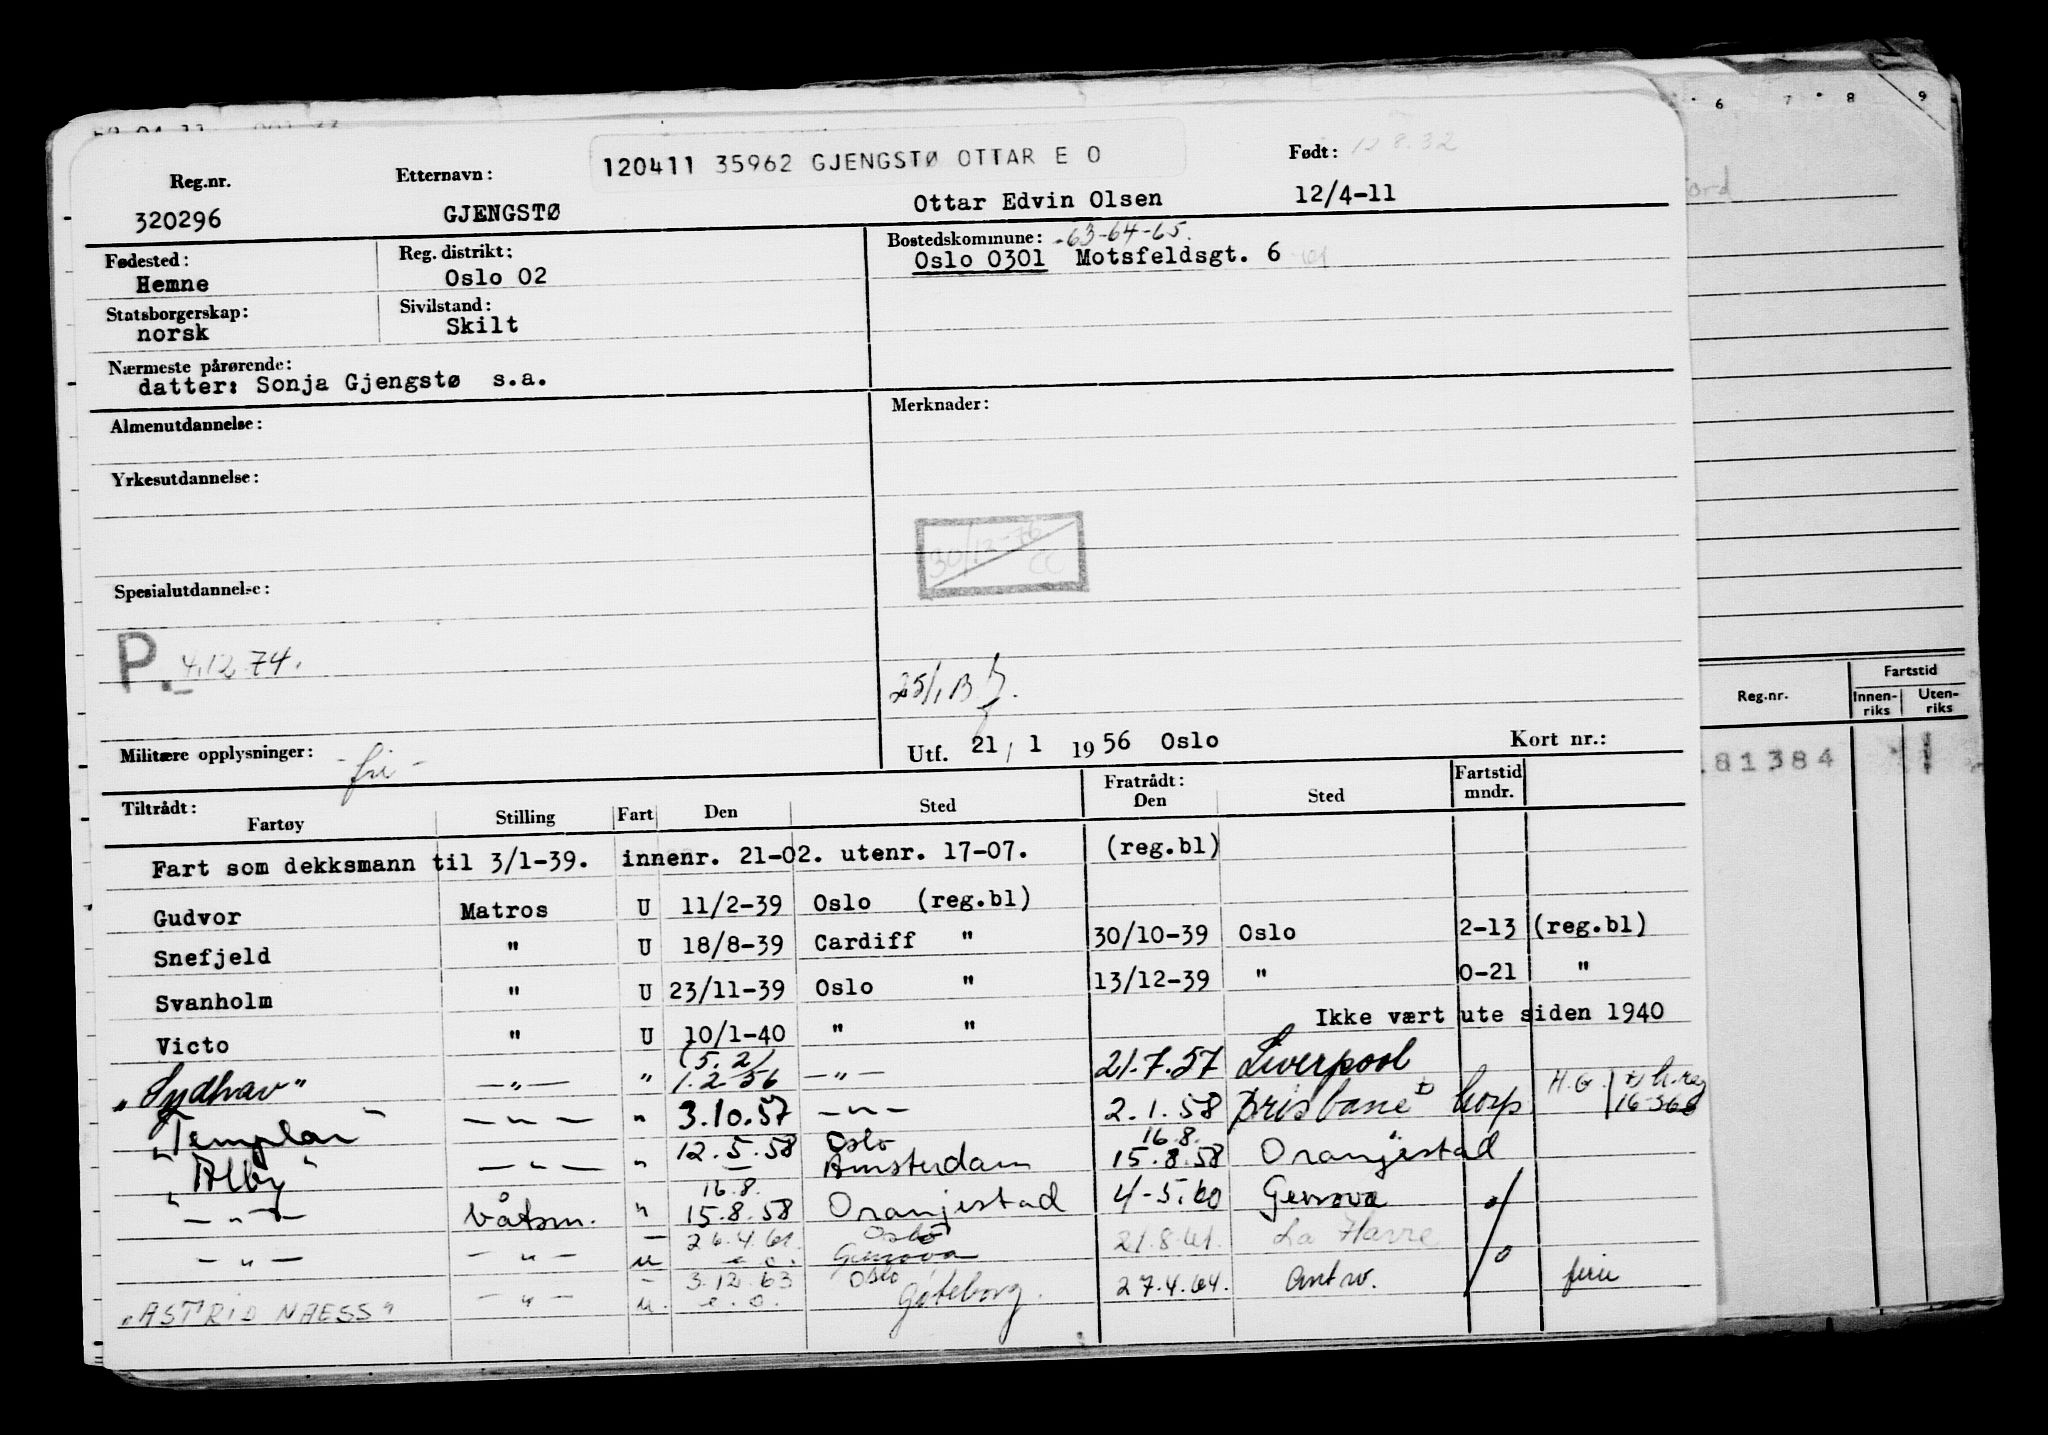 120411 35962 GJENGSTØ OTTAR E O
Reg.nr. Etternavn: Født: 12.8.32
320296 GJENGSTØ Ottar Edvin Olsen 12/4-11
Fødested: Reg. distrikt: Bostedskommune: -63-64-65.
Hemne Oslo 02 Oslo 0301 Motsfeldsgt. 6
Statsborgerskap: Sivilstand:
norsk Skilt
Nærmeste pårørende:
datter: Sonja Gjengstø s.a.
Almenutdannelse: Merknader:
Yrkesutdannelse:
30/12-76 CC
Spesialutdannelse:
P. 4.12.74.
25/1 B
Militære opplysninger: -fri- Utf. 21/1 1956 Oslo Kort nr.:
Tiltrådt: Fratrådt: Fartstid
Fartøy Stilling Fart Den Sted Den Sted mndr.
Fart som dekksmann til 3/1-39. innenr. 21-02. utenr. 17-07. (reg.bl)
Gudvor Matros U 11/2-39 Oslo (reg.bl)
Snefjeld " U 18/8-39 Cardiff " 30/10-39 Oslo 2-13 (reg.bl)
Svanholm " U 23/11-39 Oslo " 13/12-39 " 0-21 "
Victo " U 10/1-40 " " Ikke vært ute siden 1940
(5.2)
"Sydhav" —"— " 1.2-56 —"— 21.7.57 Liverpool
"Templar" —"— " 3.10.57 —"— 2.1.58 Brisbane H.G.
12.5.58 Oslo 16.8.
"Alby" —"— " — Amsterdam 15.8.58 Oranjestad
16.8.
—"— båtsm. " 15.8.58 Oranjestad 4-5.60 Genova
26.4.61. Oslo
—"— —"— u e.o. Genova 21.8.61. La Havre
3.12.63 Oslo
"ASTRID NAESS" —"— u. e.o. Gøteborg. 27.4.64. Antw. ferie
6 7 8 9
Fartstid
Reg.nr. Innen-riks Uten-riks
81384